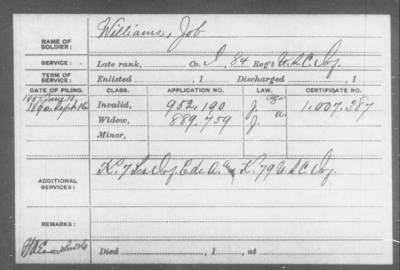 NAME OF SOLDIER: Williams, Job
SERVICE: Late rank, Co. I, 84 Reg't U.S.C. Inf.
TERM OF SERVICE: Enlisted , 1 Discharged , 1
DATE OF FILING. CLASS. APPLICATION NO. LAW. CERTIFICATE NO.
1907 Invalid, 952,190 1,007,387
1890 Sept 16 Widow, 889,759
Minor,
ADDITIONAL SERVICES: K. 7 La Inf. C de A. K. 79 U.S.C. Inf.
REMARKS:
Died , 1 , at